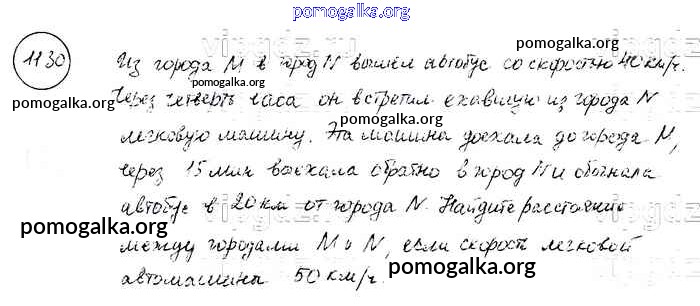 pomogalka.org
1130 Из города М в город N вышел автобус со скоростью 40 км/ч.
pomogalka.org
pomogalka.org
Через четверть часа он встретил ехавшую из города N
легковую машину. Эта машина доехала до города М,
через 15 мин выехала обратно в город N и обогнала
автобус в 20 км от города N. Найдите расстояние
pomogalka.org
pomogalka.org
между городами М и N, если скорость легковой
автомашины 50 км/ч.
pomogalka.org